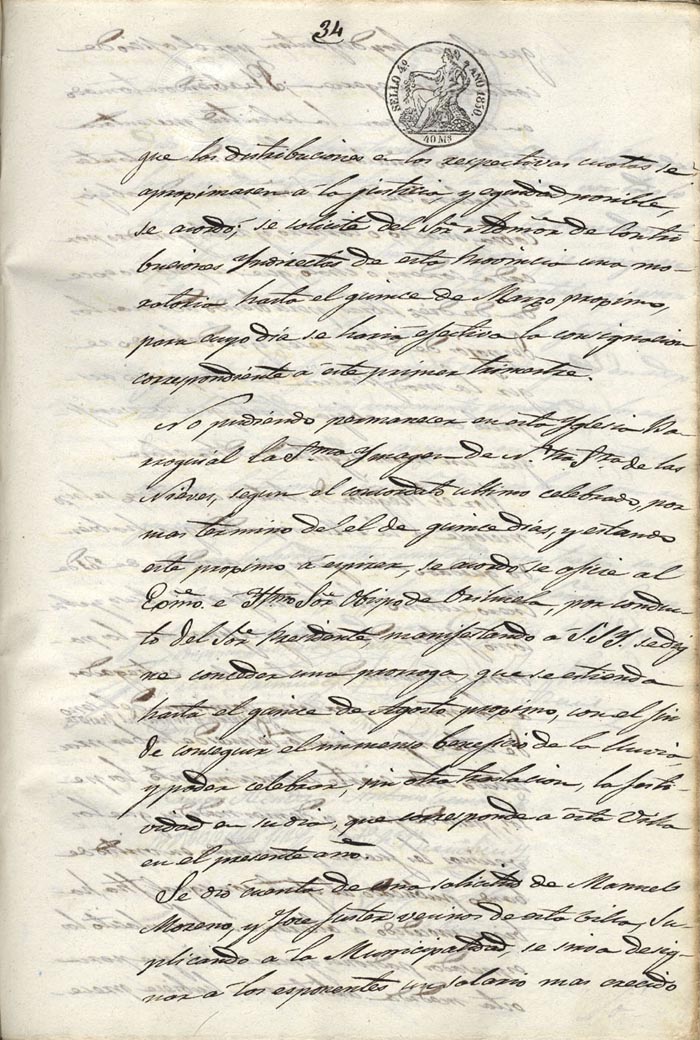 34
SELLO 4º AÑO 1850
40 Ms
que las distribuciones en las respectivas cuotas se
aproximasen á la justicia y equidad posible,
se acordó; se solicite del Sor. Admor. de Contri
buciones Yndirectas de esta Provincia una mo-
ratoria hasta el quince de Marzo proximo,
para cuyo dia se haria efectiva la consignacion
correspondiente á este primer trimestre.
No pudiendo permanecer en esta Yglesia Pa-
rroquial la Sma. Ymagen de N.tra Sra. de las
Nieves, segun el concordato ultimo celebrado, por
mas termino del el de quince dias, y estando
este proximo á espirar, se acordó se oficie al
Exmo. e Yltmo Sor. Obispo de Orihuela, por conduc
to del Sor. Presidente, manifestando á S.S.Y. se dig
ne conceder una prorroga, que se estienda
hasta el quince de Agosto proximo, con el fin
de conseguir el inmenso beneficio de la lluvia
y poder celebrar, sin otra traslacion, la festi-
vidad en su dia, que corresponde á esta Villa
en el presente año.
Se dió cuenta de una solicitud de Manuel
Moreno, y Jose Juster vecinos de esta villa, su-
plicando a la Municipalidad, se sirva desig-
nar á los esponentes un salario mas crecido